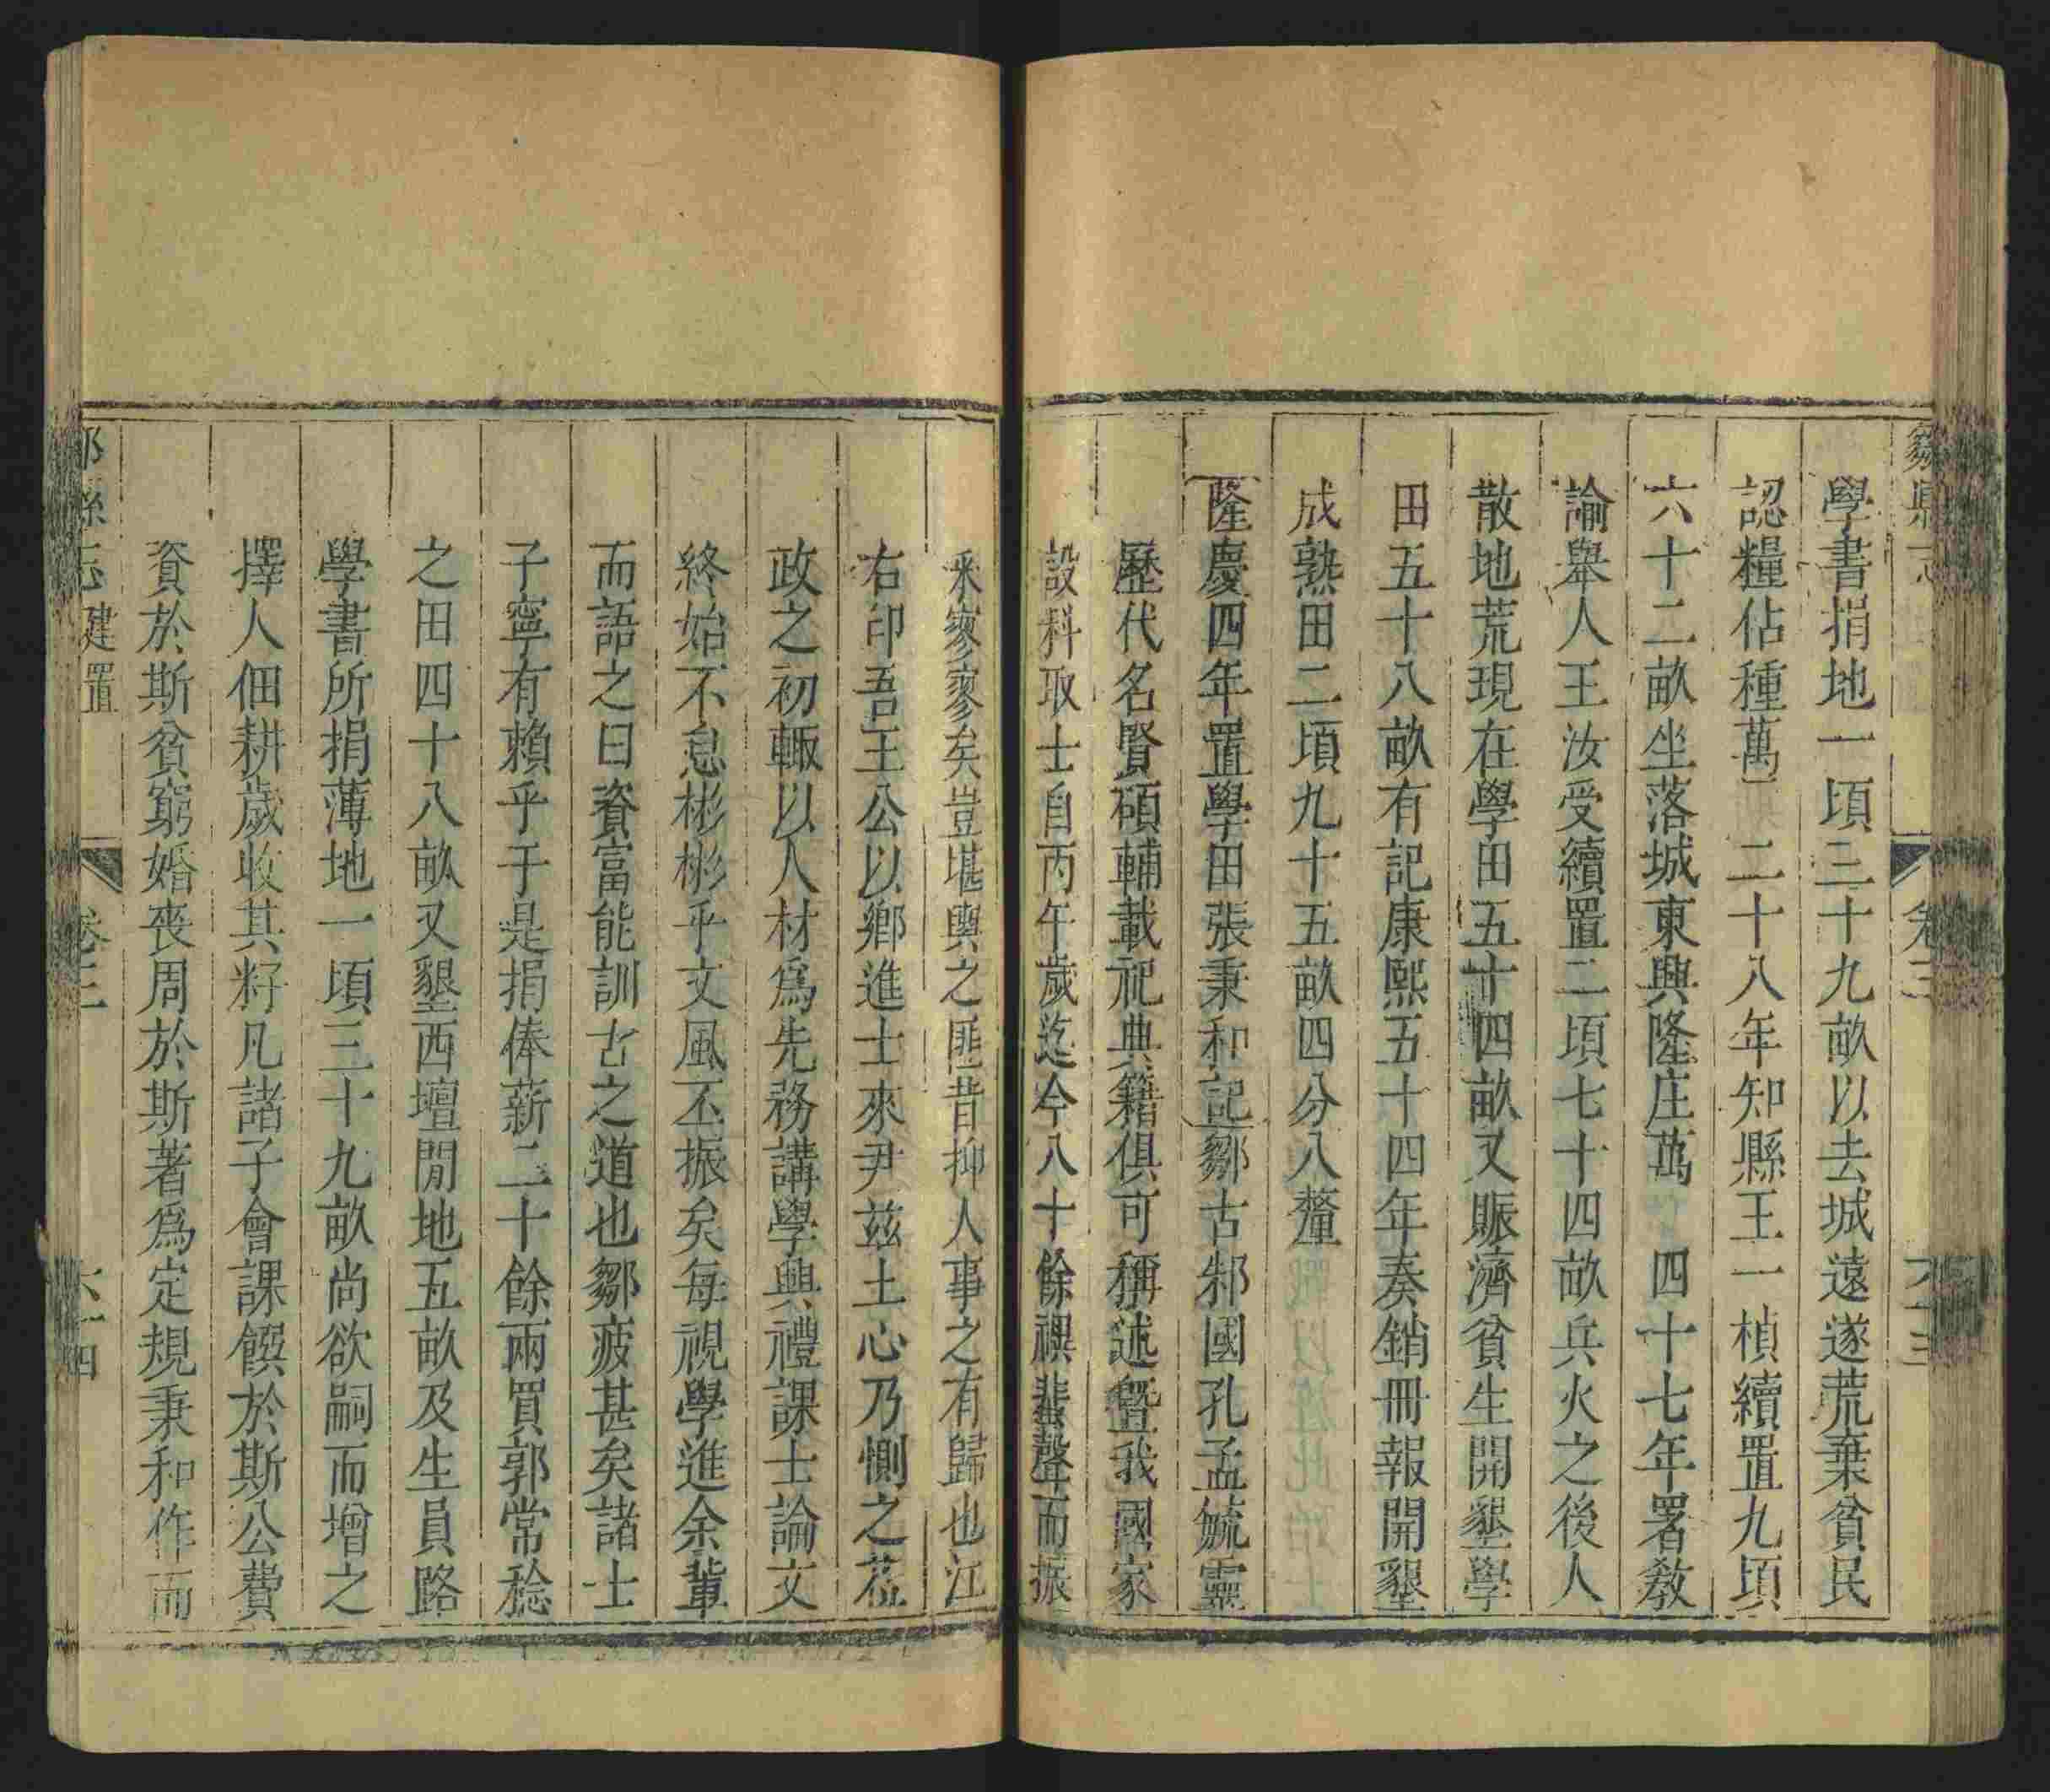 鄒縣志
卷三
六十三
學書捐地一頃三十九畝以去城遠遂荒棄貧民
認糧佔種萬 二十八年知縣王一楨續置九頃
六十二畝坐落城東興隆庄萬 四十七年署教
諭舉人王汝受續置二頃七十四畝兵火之後人
散地荒現在學田五十四畝又賑濟貧生開墾學
田五十八畝有記康熙五十四年奏銷冊報開墾
成熟田二頃九十五畝四分八釐
隆慶四年置學田張秉和記鄒古邾國孔孟毓靈
歷代名賢碩輔載祀典籍俱可稱述曁我國家
設科取士自丙午歲迄今八十餘禩蜚聲而振
釆寥寥矣豈堪輿之匪昔抑人事之有歸也江
右印吾王公以鄉進士來尹兹土心乃惻之蒞
政之初輙以人材爲先務講學興禮課士論文
終始不怠彬彬乎文風丕振矣每視學進余輩
而語之曰資富能訓古之道也鄒疲甚矣諸士
子寧有賴乎于是捐俸薪二十餘兩買郭常稔
之田四十八畝又墾西壇閒地五畝及生員路
學書所捐薄地一頃三十九畝尚欲嗣而增之
擇人佃耕歲收其籽凡諸子會課饌於斯公費
資於斯貧窮婚喪周於斯著爲定規秉和作而
鄒縣志 建置
卷三
六十四